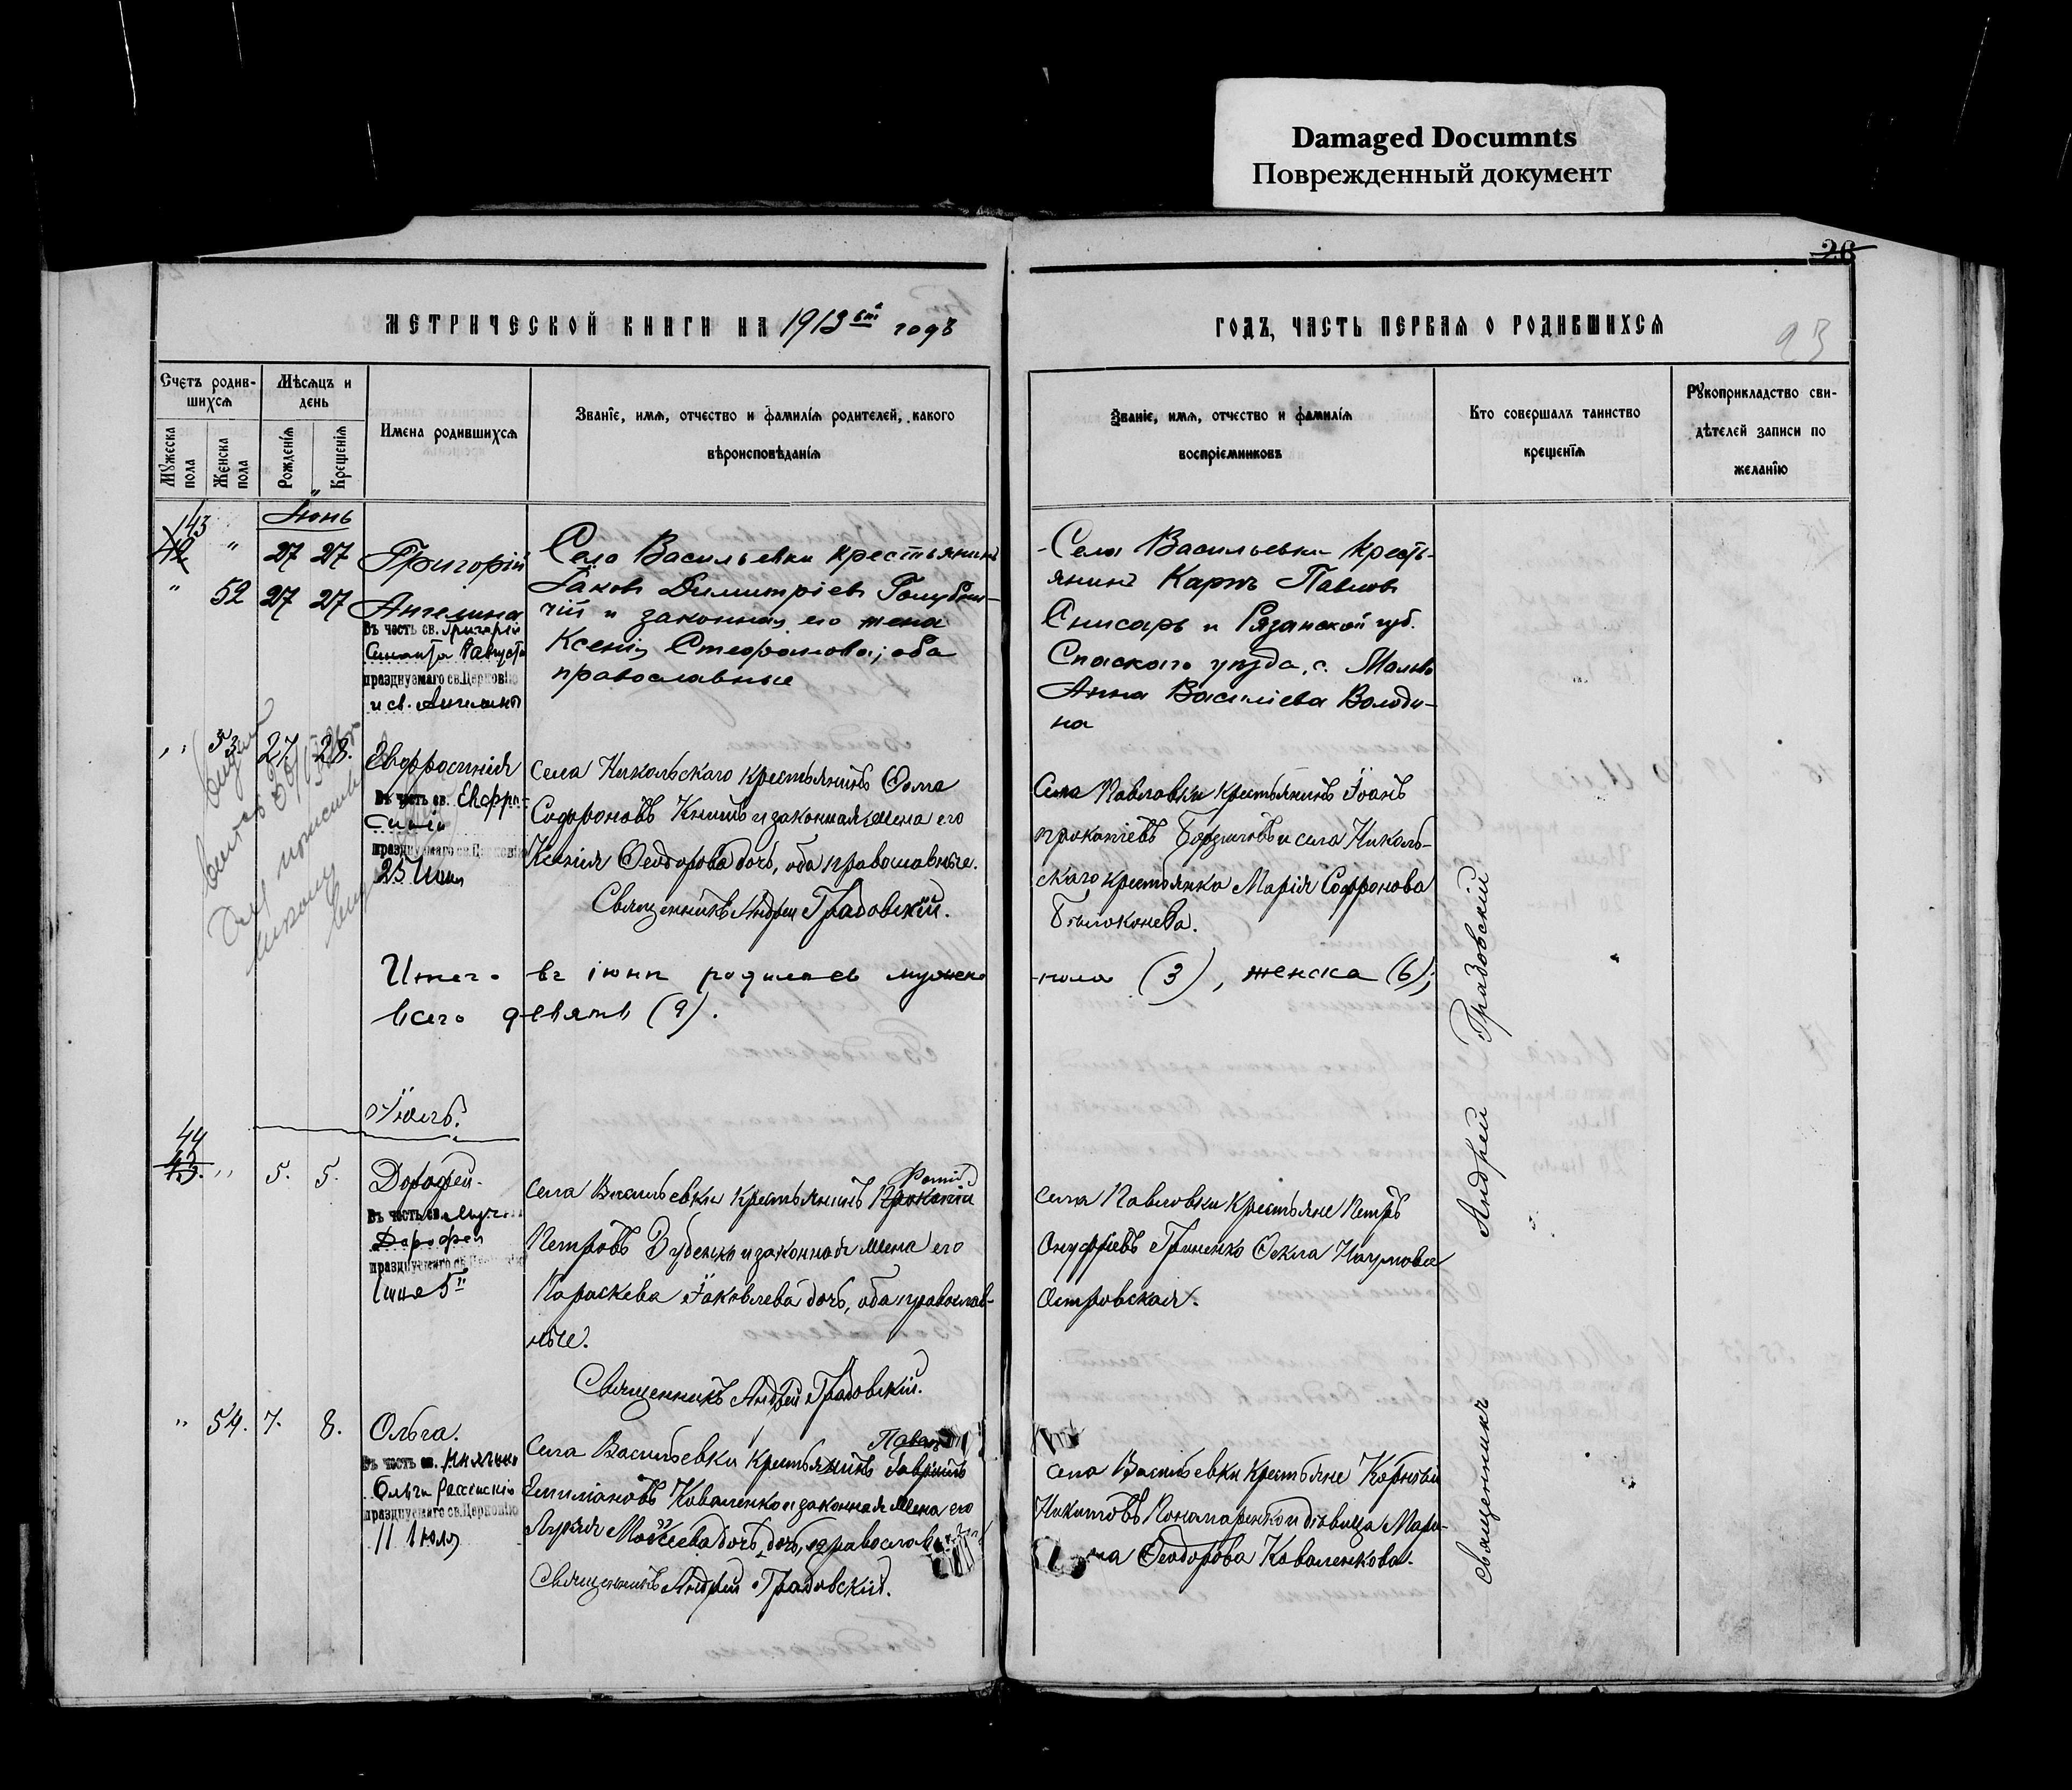 Damaged Documnts
Поврежденный документ
26
93
МЕТРИЧЕСКОЙ КНИГИ НА 1913 годъ
ГОДЪ, ЧАСТЬ ПЕРВАЯ О РОДИВШИХСЯ
Счетъ родив-
шихся
Мужеска пола
Женска пола
Мѣсяцъ и
день
Рожденія
Крещенія
Имена родившихся
Званіе, имя, отчество и фамилія родителей, какого
вѣроисповѣданія
Званіе, имя, отчество и фамилія
воспріемниковъ
Кто совершалъ таинство
крещенія
Рукоприкладство сви-
дѣтелей записи по
желанію
Іюнь
143
42 " 27 27 Григорій
" 52 27 27 Ангелина
Въ честь св. Григорія
8 Августа
празднуемаго св. Церковію
и св. Ангелины
Село Васильевки крестьянинъ
Іаковъ Димитріевъ
и законная его жена
Ксенія Стефанова; оба
православные
Села Васильевки кресть-
янинъ Карпъ Павловъ
Снисарь и Рязанской губ.
Спаскаго уѣзда, с.
Анна Василіева Володи-
на
" 53 27. 28. Евфросинія
Въ честь св. Евфро-
синіи
празднуемаго св. Церковію
25 Іюня
Села Никольскаго крестьянинъ Ѳома
Софроновъ и законная жена его
Ксенія Ѳеодорова дочь, оба православные.
Священникъ Андрей Градовскій.
Села Павловки крестьянинъ Іоаннъ
Прокопіевъ и села Николь-
скаго крестьянка Марія Софронова
Бѣлоконева.
Итого въ іюнѣ родилось мужеска
пола (3), женска (6);
всего девять (9).
Іюль.
44
43. " 5. 5. Дорофей.
Въ честь св. Муч.
Дорофея
празднуемаго св. Церковію
Іюня 5
Села Васильевки крестьянинъ Прокопій
Фотій
Петровъ и законная жена его
Параскева Іаковлева дочь, оба православ-
ные.
Священникъ Андрей Градовскій.
Села Павловки крестьяне Петръ
Онуфріевъ Гриненко Ѳекла Наумова
Островская.
" 54. 7. 8. Ольга.
Въ честь св. Княгини
Ольги Россійской
празднуемаго св. Церковію
11 Іюля
Павелъ
Села Васильевки крестьянинъ Гавріилъ
Емиліановъ Коваленко и законная жена его
Моѵсеева дочь, дочь,
Священникъ Андрей Градовскій.
Села Васильевки крестьяне Корнилій
Никитовъ Пономаренко и дѣвица Мари-
на Ѳеодорова Коваленкова.
Священникъ Андрей Градовскій